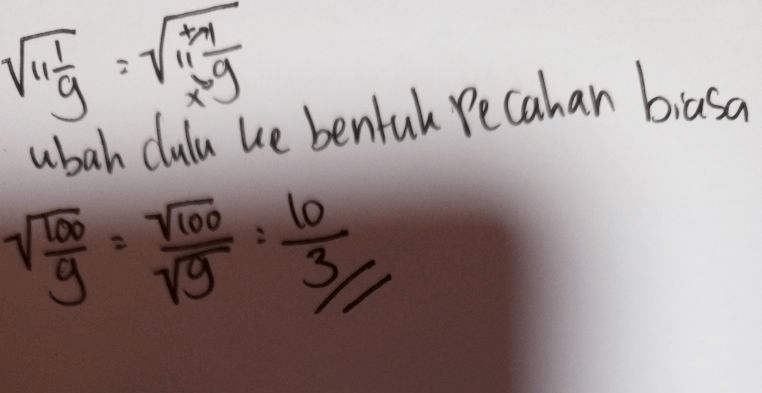 √11 1/9 = √11 1/9 + x
ubah dulu ke bentuk pecahan biasa
√100/9 = √100/√9 = 10/3 //